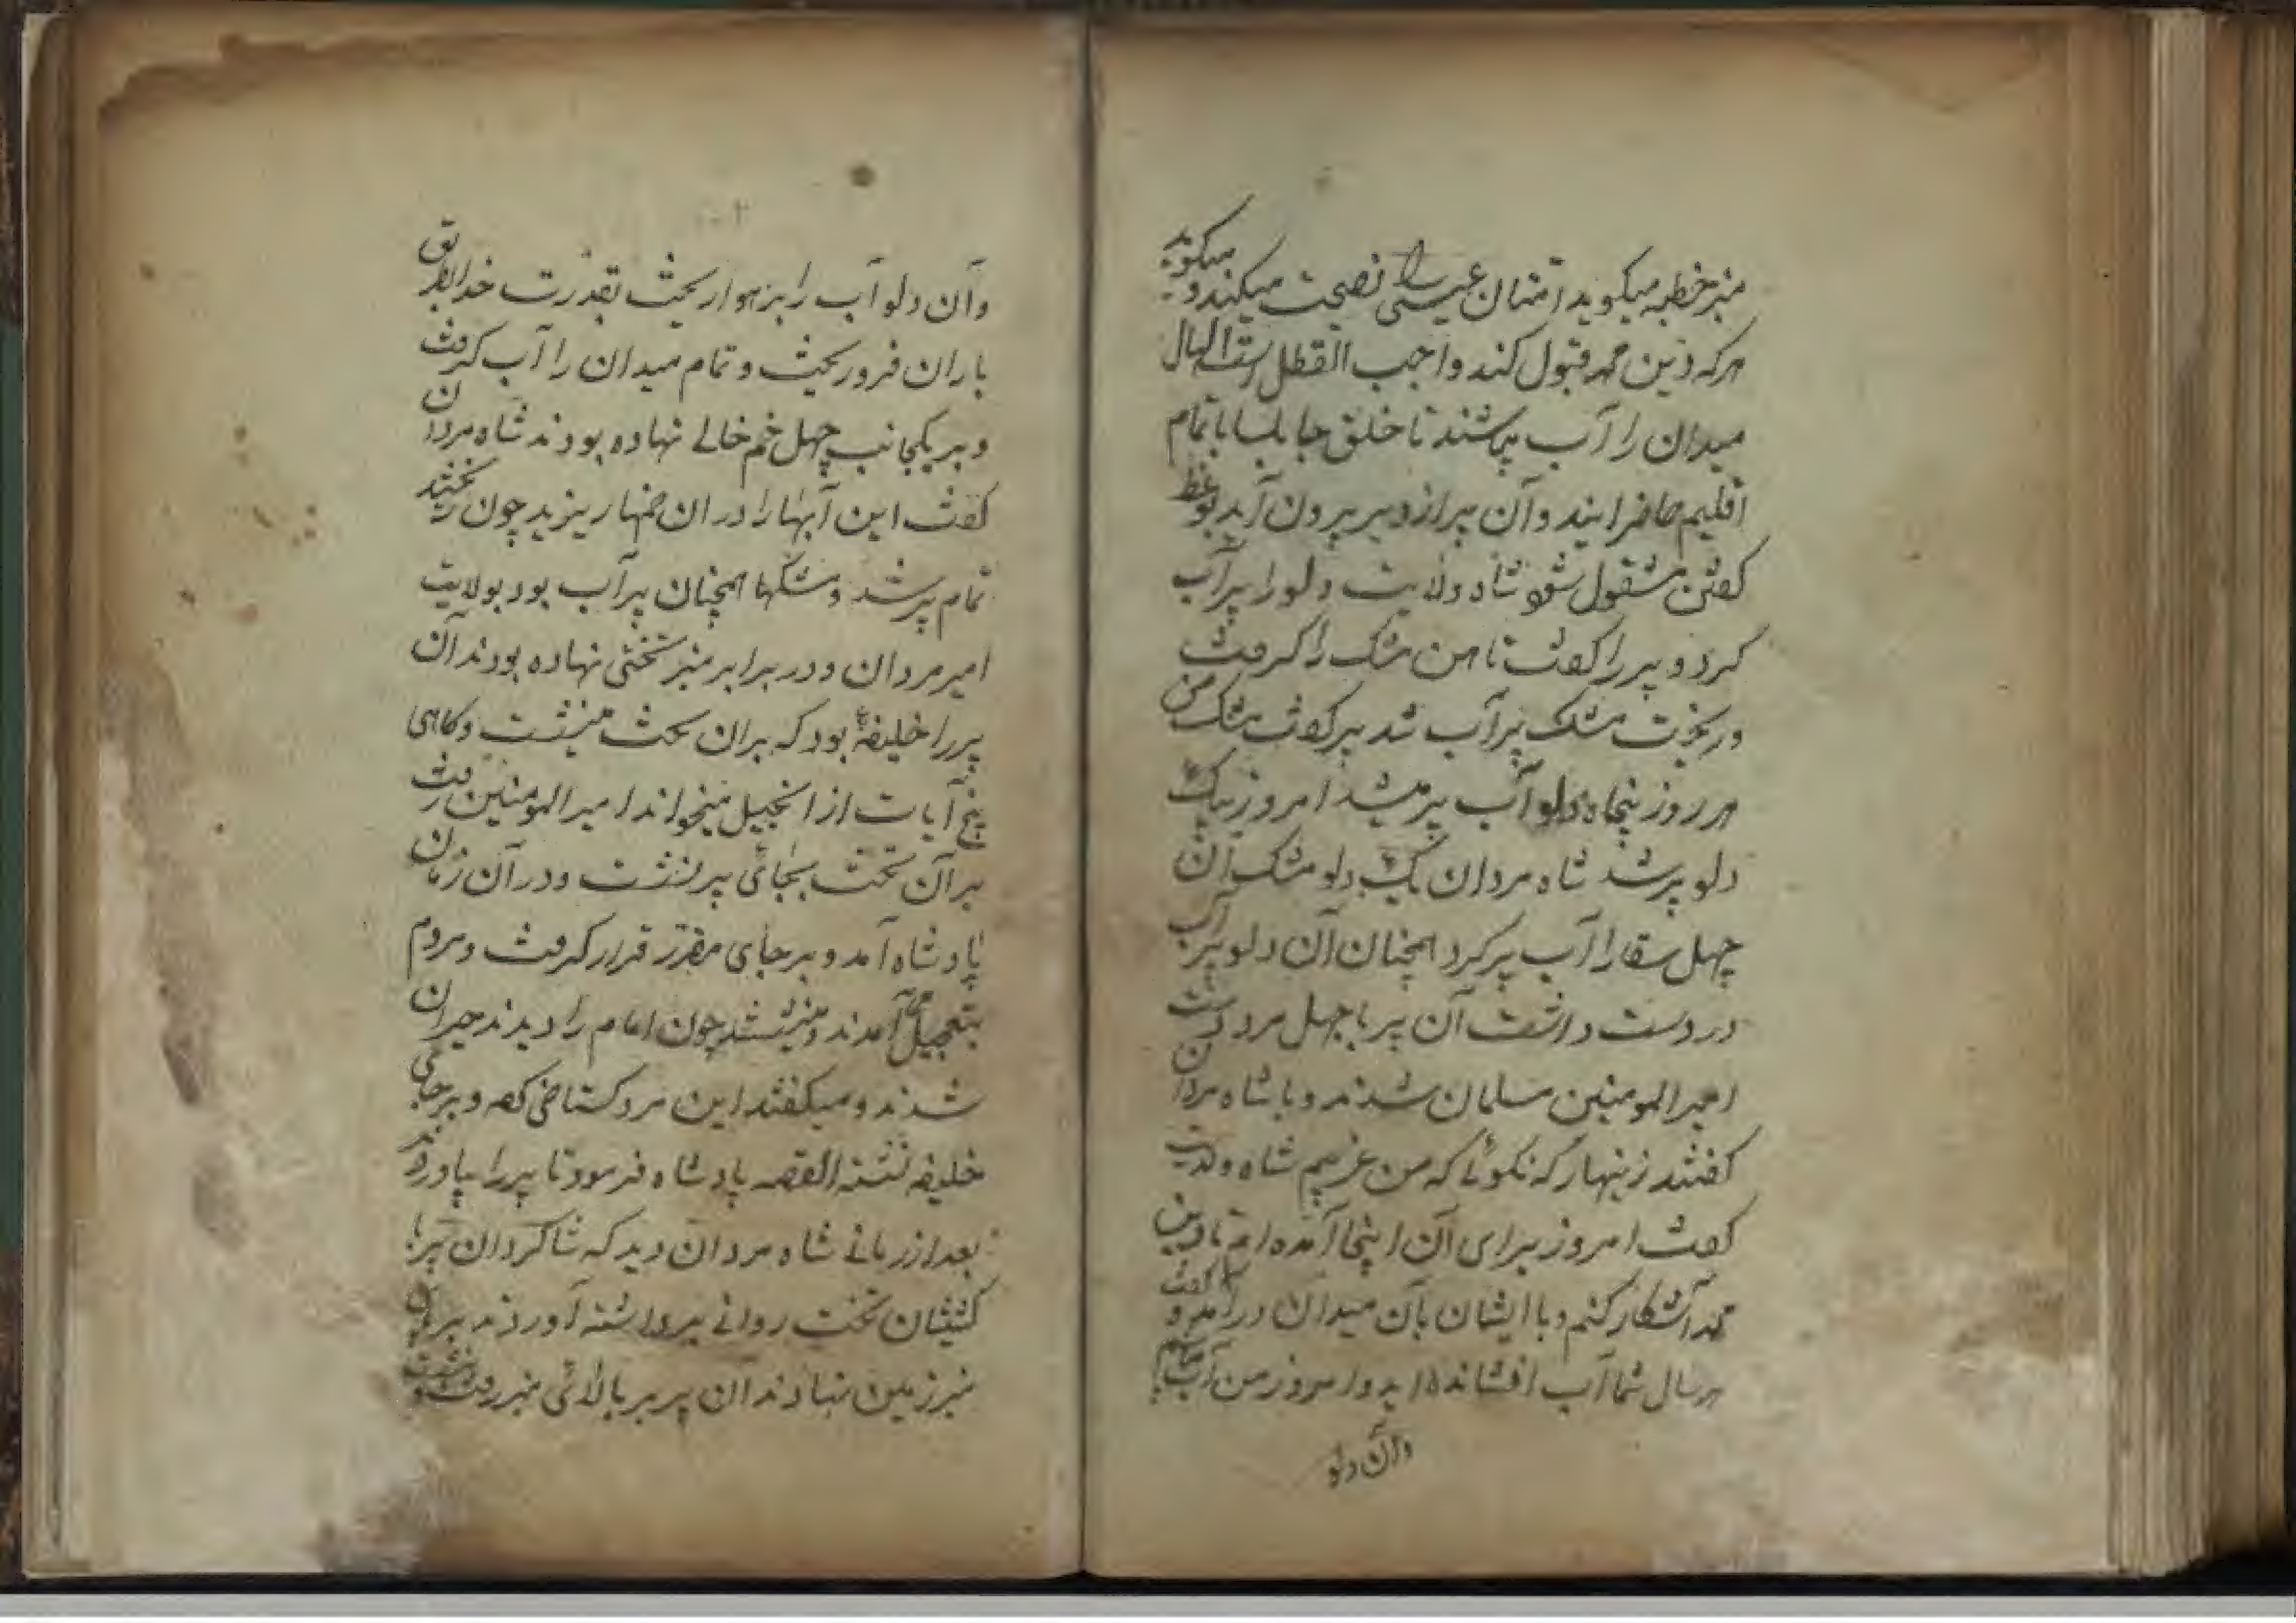 منبر خطبه میکوید امتان عیسی را نصیحت میکند و میکوید
هرکه دین محمد قبول کند واجب القطل است الحال
میدان را آب میپاشند تا خلق جابلسا با تمام
اقلیم حاضر ایند و آن پیر از دیر بیرون آید بوعظ
کفتن مشقول شود شاه ولایت دلو را پر آب
کرد و پیر را کفت تا دهن مشک را کرفت
و ریخت مشک پر آب شد پیر کفت مشک من
هر روز پنجاه دلو آب پر میشد امروز بیک
دلو پر شد شاه مردان بیک دلو مشک آن
چهل سقا را آب پر کرد همچنان آن دلو پر آب
در دست داشت آن پیر با چهل مرد بدست
امیر المومنین مسلمان شدند و با شاه مردان
کفتند زینهار که نکوئی که من غریبم شاه ولایت
کفت امروز برای آن اینجا آمده ام تا دین
محمد آشکار کنم و با ایشان بآن میدان درآمد و کفت
هر سال شما آب افشانده اید و امروز من آب
وآن دلو
وآن دلو آب را بر هوا ریخت بقدرت خدایتعالی
باران فرو ریخت و تمام میدان را آب کرفت
و بر یکجانب چهل خم خالی نهاده بودند شاه مردان
کفت این آبها را در ان خمها ریزید چون ریختند
تمام پر شد و مشکها همچنان پر آب بود بولایت
امیر مردان و در برابر منبر تختی نهاده بودند آن
پیر را خلیفهٔ بود که بران تخت می نشست و کاهی
پنج آیات از انجیل میخواند امیر المومنین رفت
بر آن تخت بجائی پیر نشست و در آن زمان
پادشاه آمد و بر جای مقرر قرار کرفت و مردم
بتعجیل می آمدند و می نشستند چون امام را دیدند حیران
شدند و میکفتند این مرد کستاخی کرده و بر جای
خلیفه نشسته القصه پادشاه فرمود تا پیر را بیاورند
بعد از زمانی شاه مردان دید که شاکردان پیر با
کشیشان تخت روانی برداشته آوردند بر
منبر زمین نهادند آن پیر بر بالائی منبر رفت و نشست